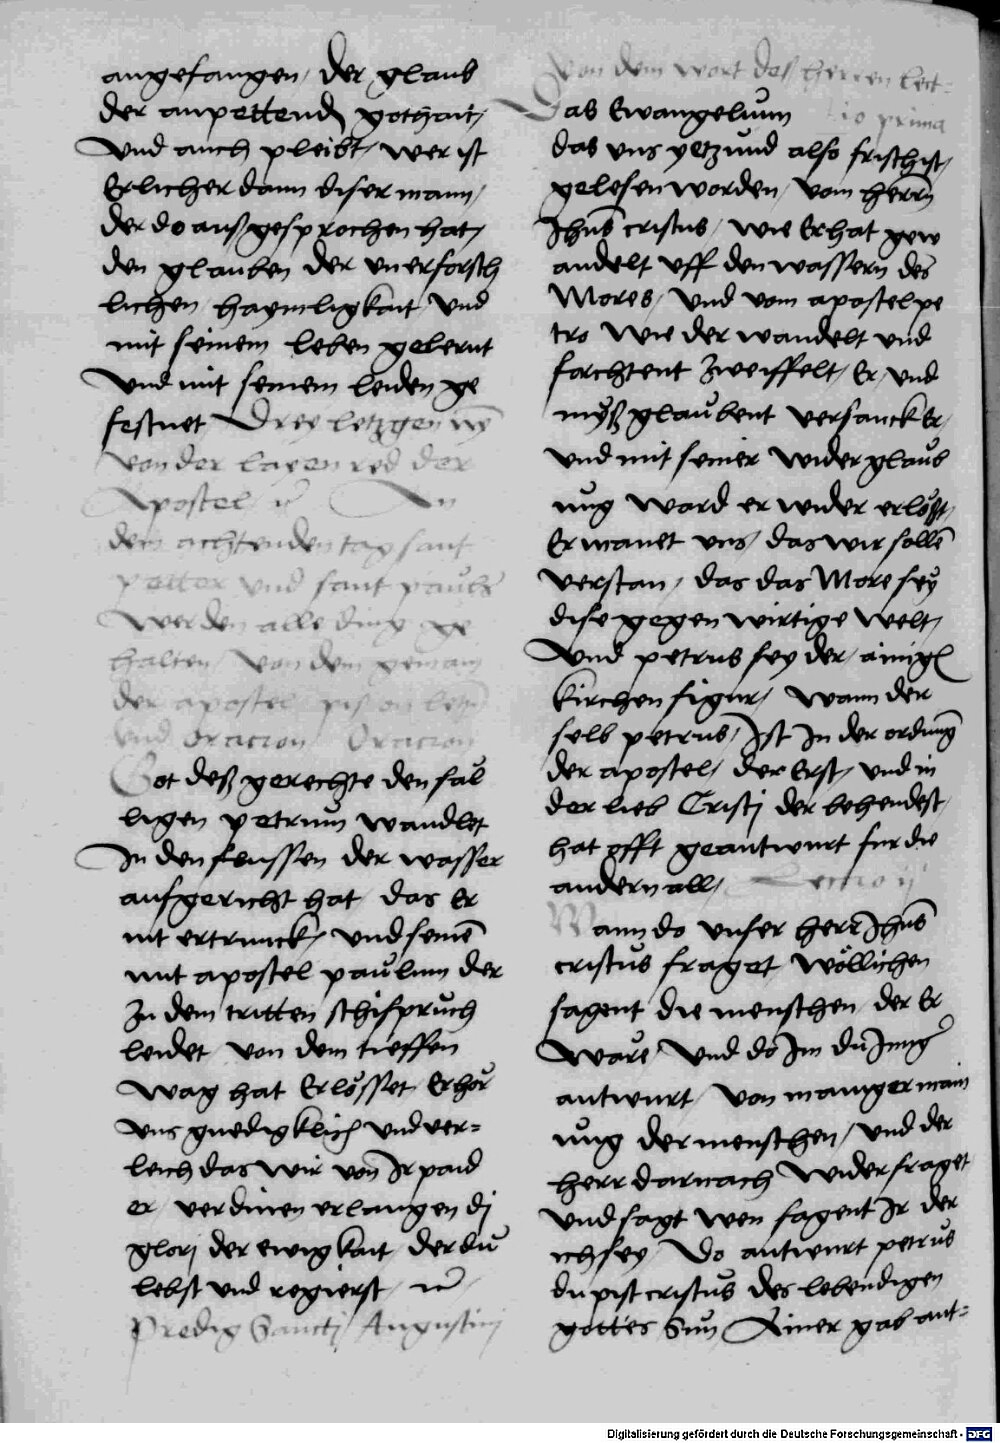 angefangen, der glaub
der anpettend gothait,
Und auch pleibt, wer ist
Erlicher dann diser mann,
der do außgesprochen hat,
den glauben der vnerforsch
lichen haymligkait Und
mit seinem leben gelernt
Und mit seinem leiden ge
festnet Drey letzgen
von der layen red der
Apostel An
dem achtenden tag sant
petter Und sant pauls
Werden alle ding ge
halten, Von dem gemain
der apostel
und Oracion Oracion
Got deß gerechte den sal
ligen petrum wandlet
In den flussen der wasser
aufgericht hat, das Er
nit ertrunck, Und seinen
mit apostel paulum der
In dem tritten schifpruch
leidet von dem tieffen
wag hat Erlösset, Erhör
vns gnedigklich und ver=
leich das wir von Ir paid
er, verdinen erlangen di
glorj der ewigkait, der du
lebst und regierst,
Predig Sancti Augustini
Von dem wort des herren lect=
io prima
Das Ewangelium
das vns yetzund also frisch ist,
gelesen worden, vom herrn
Jhus cristus, wie Er hat gew
andelt uff den wassern des
Mores, Und vom apostel pe
tro wie der wandelt und
forchtent zweiffelt, Er, Und
myßglaubent versanck Er,
Und mit seiner widerglaub
ung ward er wider erlößt,
Er manet vns, das wir sollen
verstan, das das More sey
dise gegenwirtige welt,
Und petrus sey der, ainigen
kirchen figur, Wann der
selb petrus, Ist In der ordnung
der apostel, der Erst, und in
der lieb Cristj der behendest,
hat offt geantwurt fur die
andern all, Lectio ij
Wann do vnser herr Jhus
cristus fraget wöllichen
sagent die menschen, der Er
Ware, Und do Im du Junger
antwurt, von maniger main
ung der menschen, Und der
herr darnach wider fraget
Und sagt wen sagent Ir der
ich sey, Do antwurt petrus
du pist cristus des lebendigen
gottes Sun, Ainer gab ant=
Digitalisierung gefördert durch die Deutsche Forschungsgemeinschaft - DFG